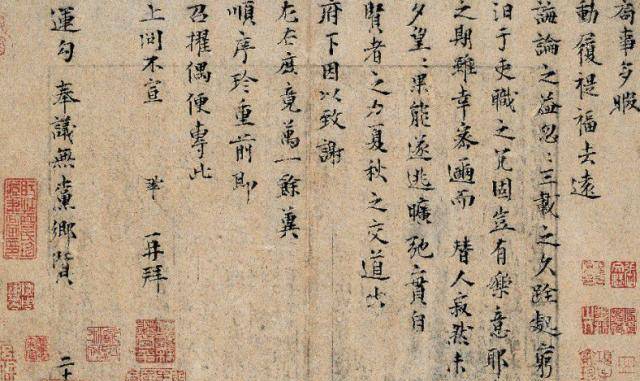 局事多暇
動履禔福去遠
誨論之益忽〻三載之久跧處窮
汩于吏職之冗固豈有樂意耶
之期雖幸密邇而替人寂然未
夕望〻果能遂逃曠弛實自
賢者之力夏秋之交道出
府下因以致謝
左右庶竟萬一餘冀
順序珍重前即
召擢偶便專此
上問不宣 鞏 再拜
運勾 奉議無黨鄉賢
二十